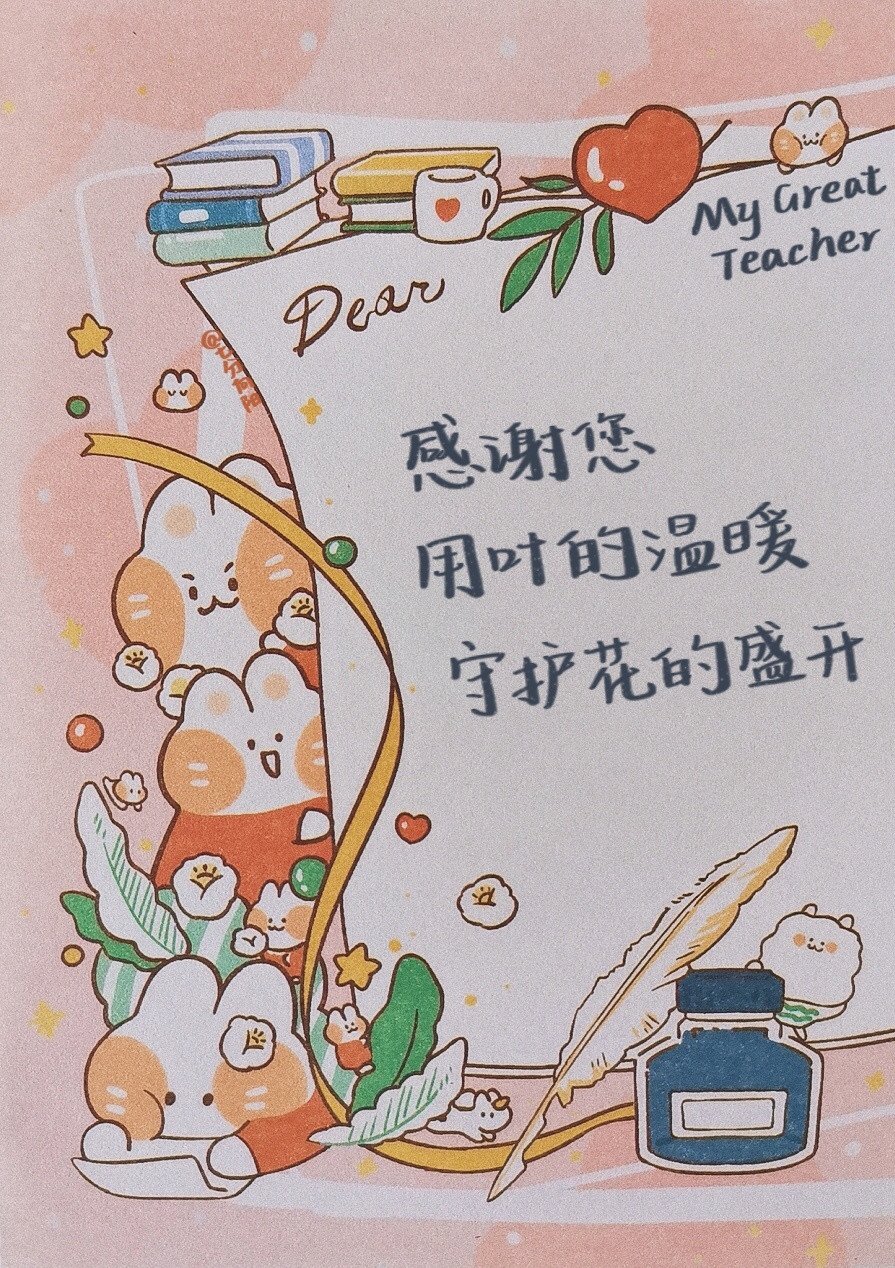 My Great
Teacher
Dear
感谢您
用叶的温暖
守护花的盛开
@七分向阳